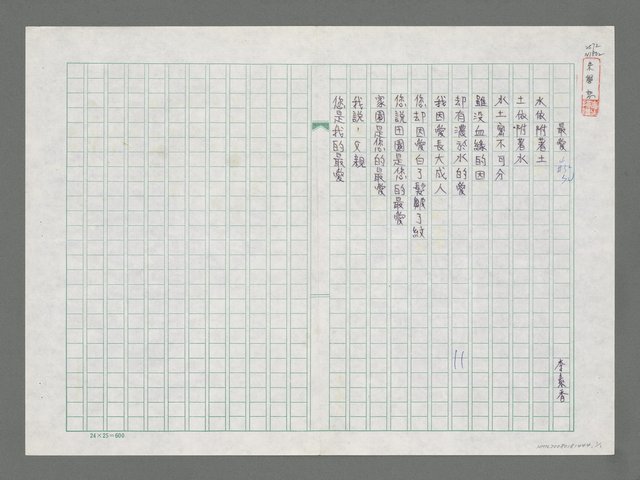 最愛
李素香
水依附著土
土依附著水
水土密不可分
雖沒血緣的因
却有濃於水的愛
我因愛長大成人
您却因愛白了髮皺了紋
您說田園是您的最愛
家園是您的最愛
我說，父親
您是我的最愛
24×25=600